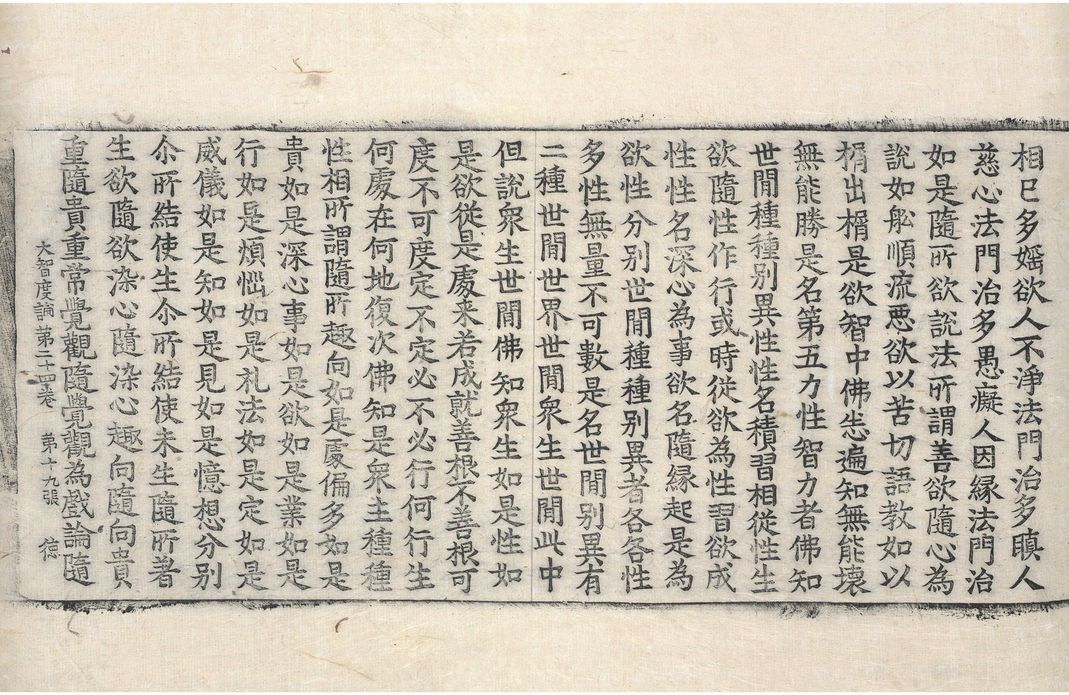 相已多婬欲人不淨法門治多瞋人
慈心法門治多愚癡人因縁法門治
如是隨所欲說法所謂善欲隨心為
說如舩順流惡欲以苦切語教如以
榍出榍是欲智中佛悉遍知無能壞
無能勝是名第五力性智力者佛知
世間種種別異性性名積習相從性生
欲隨性作行或時從欲為性習欲成
性性名深心為事欲名隨縁起是為
欲性分別世間種種別異者各各性
多性無量不可數是名世間別異有
二種世間世界世間衆生世間此中
但說衆生世間佛知衆生如是性如
是欲從是處来若成就善根不善根可
度不可度定不定必不必行何行生
何處在何地復次佛知是衆生種種
性相所謂隨所趣向如是處偏多如是
貴如是深心事如是欲如是業如是
行如是煩惱如是礼法如是定如是
威儀如是知如是見如是憶想分別
尒所結使生尒所結使未生隨所著
生欲隨欲染心隨染心趣向隨向貴
重隨貴重常覺觀隨覺觀為戲論隨
大智度論第二十四卷 第十九張 德